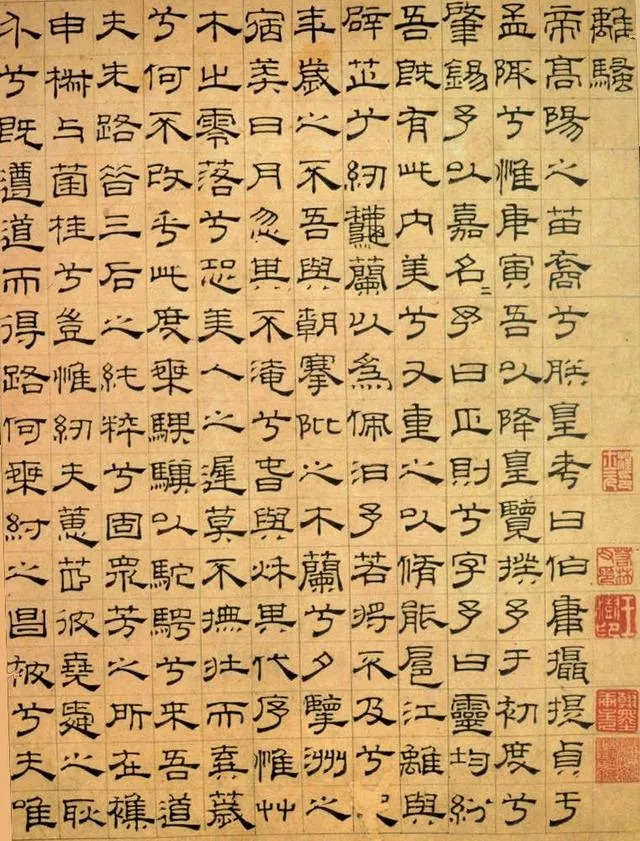 離騷
帝高陽之苗裔兮朕皇考曰伯庸攝提貞于
孟陬兮惟庚寅吾以降皇覽揆予于初度兮
肇錫予以嘉名予曰正則兮字予曰靈均紛
吾既有此內美兮又重之以脩能扈江離與
辟芷兮紉龝蘭以為佩汩予若將不及兮恐
年歲之不吾與朝搴阰之木蘭兮夕擥洲之
宿莽日月忽其不淹兮春與秋其代序惟艸
木之零落兮恐美人之遲莫不撫壯而棄薉
兮何不改乎此度乘騏驥以駝騁兮來吾道
夫先路昔三后之純粹兮固眾芳之所在襍
申椒与菌桂兮豈惟紉夫蕙茝彼堯舜之耿
介兮既遵道而得路何桀紂之昌被兮夫唯